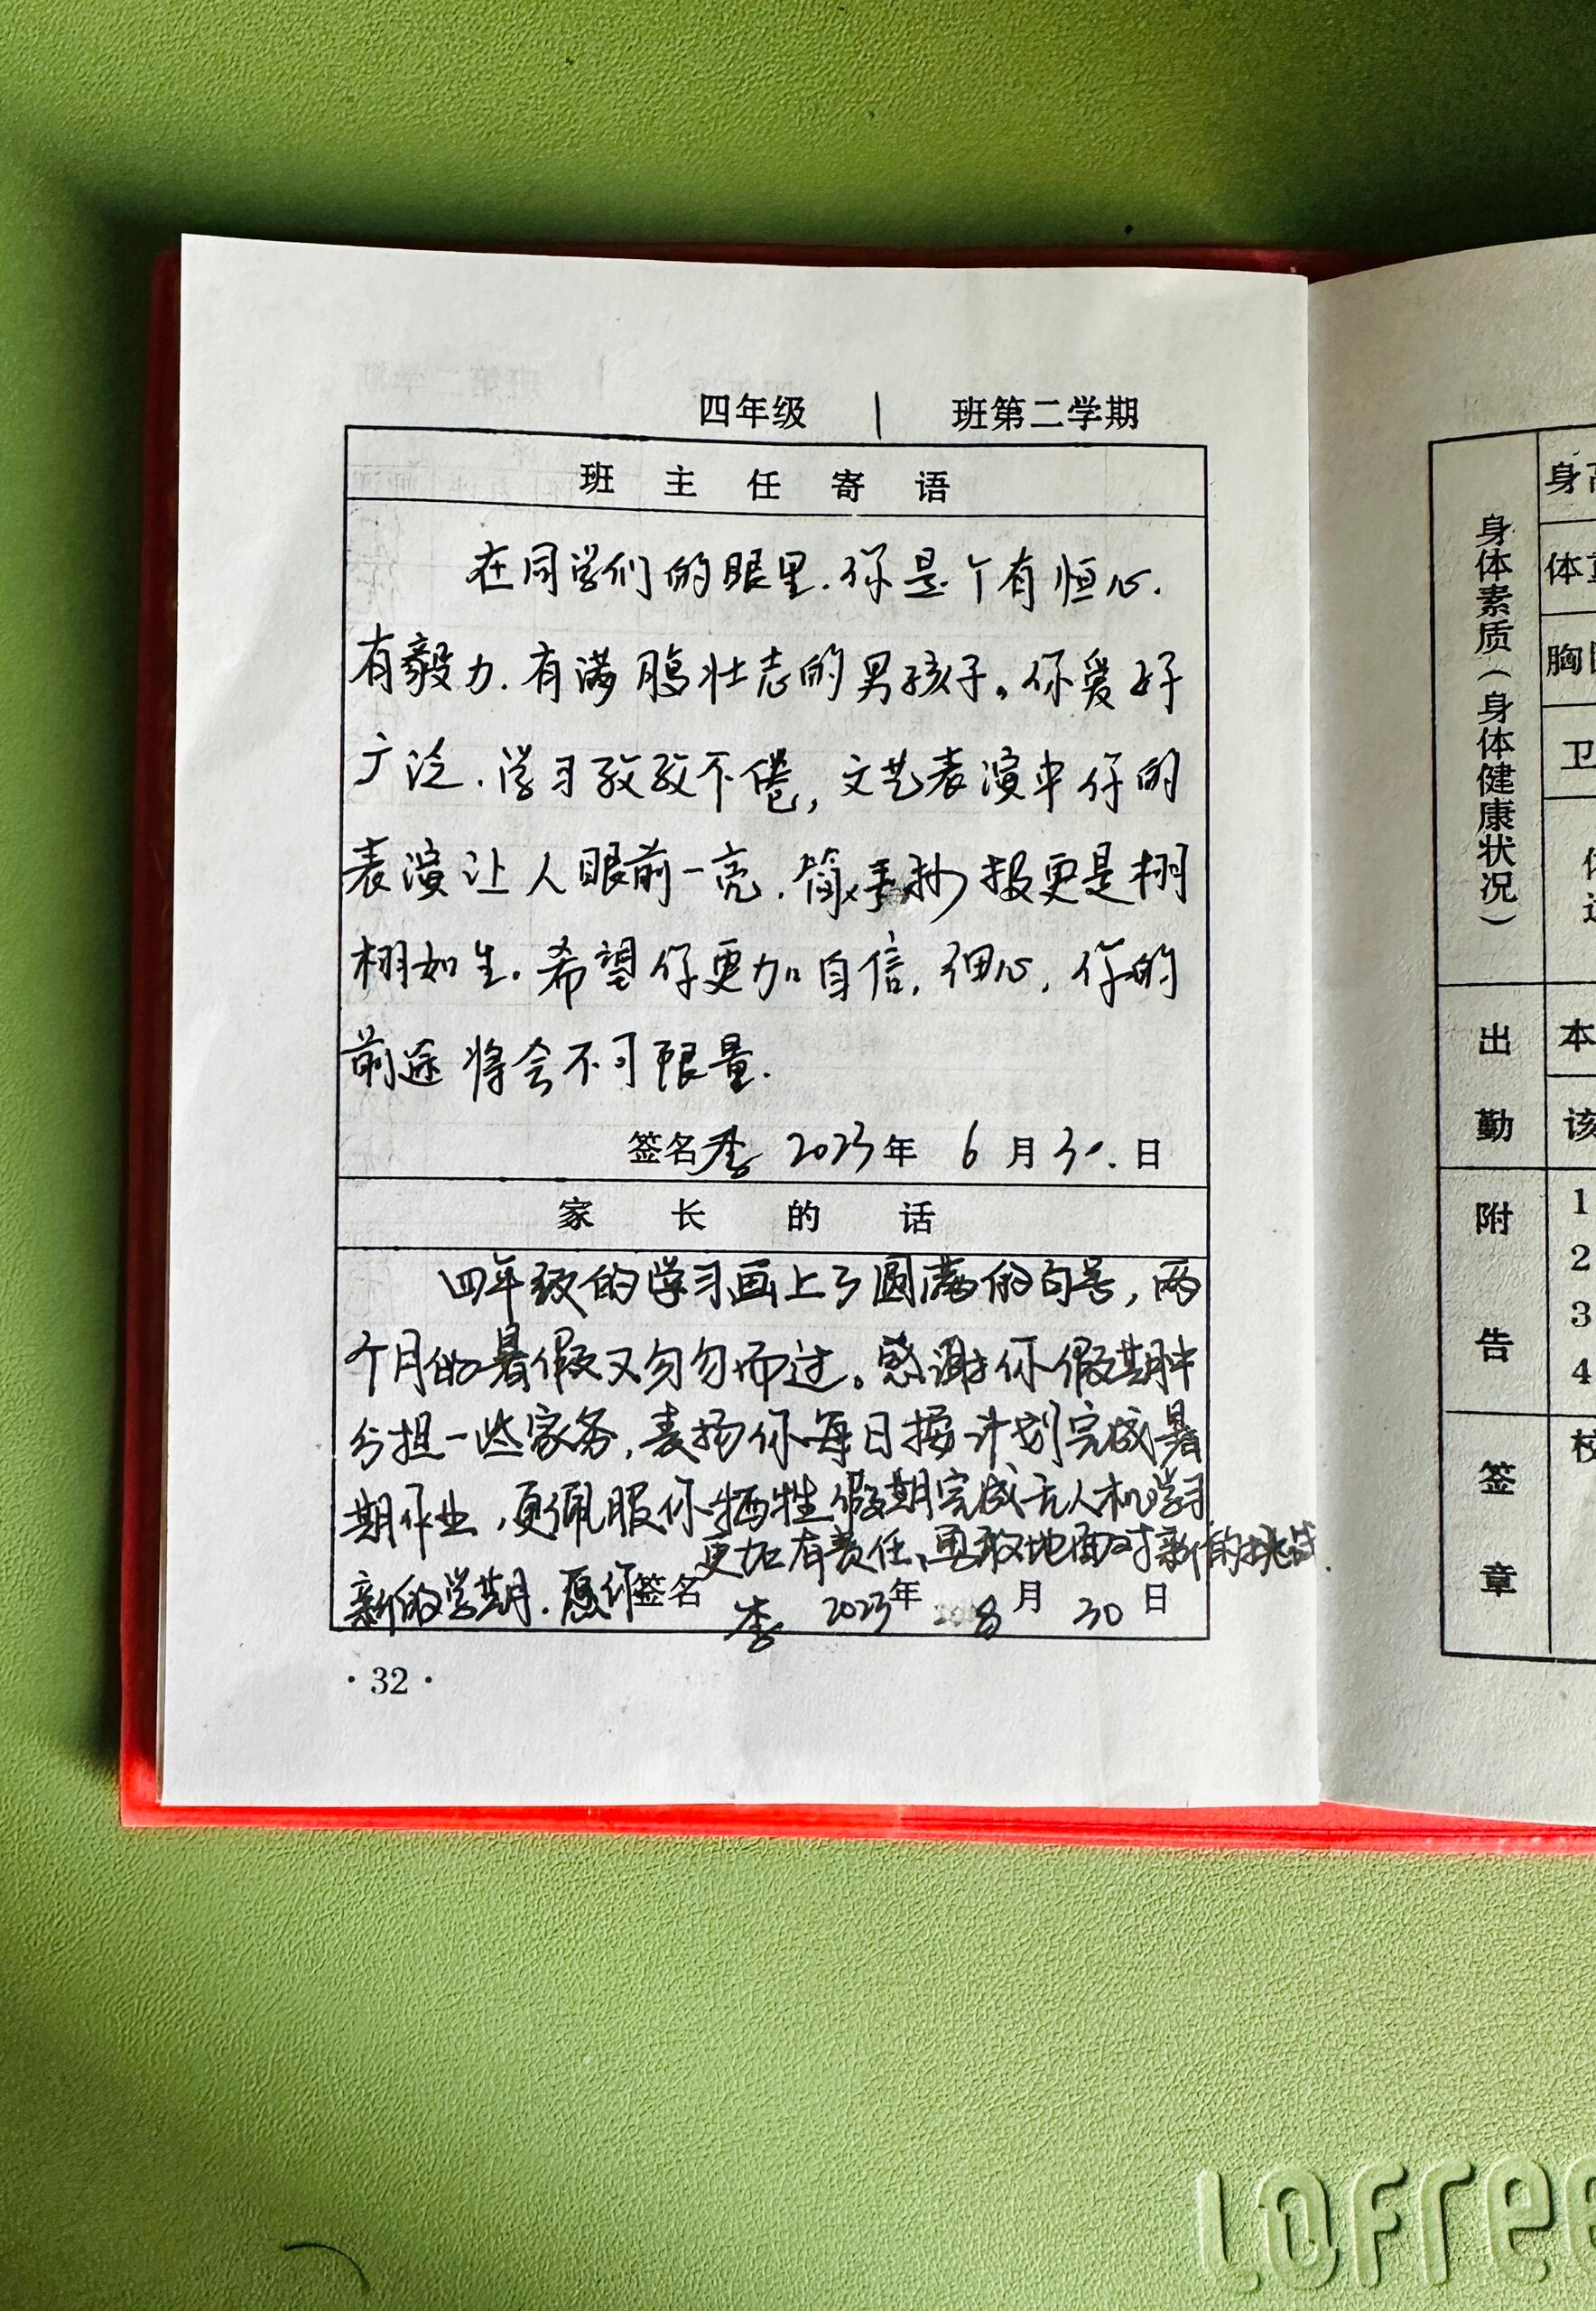 四年级 1 班第二学期
班主任寄语
在同学们的眼里.你是个有恒心.
有毅力.有满腾壮志的男孩子。你爱好
广泛.学习孜孜不倦,文艺表演中你的
表演让人眼前一亮.简手抄报更是栩
栩如生.希望你更加自信.细心,你的
前途将会不可限量.
签名 李 2023年 6月30.日
家长的话
四年级的学习画上了圆满的句号,两
个月的暑假又匆匆而过。感谢你假期中
分担一些家务,表扬你每日按计划完成暑
期作业,更佩服你牺牲假期完成无人机学习
新的学期.愿你更加有责任、勇敢地面对新的挑战.
签名 李 2023年 8月30日
·32·
身体素质(身体健康状况)
身高
体重
胸围
卫
出勤
本
该
附告
1
2
3
4
签章
校
LOFREE